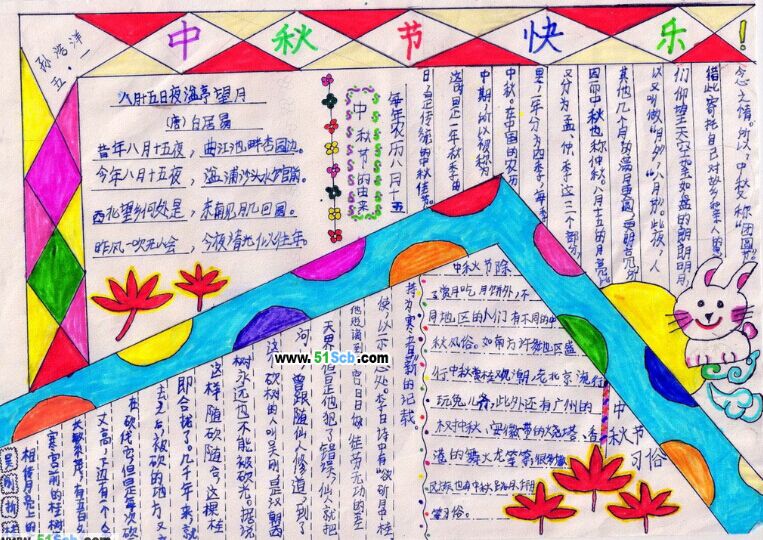 中秋节快乐!
孙浩洋
五·二
八月十五日夜湓亭望月
(唐)白居易
昔年八月十五夜,曲江池畔杏园边。
今年八月十五夜,湓浦沙头水馆前。
西北望乡何处是,东南见月几回圆。
昨风一吹无人会,今夜清光似往年。
中秋节的由来
每年农历八月十五
日,是传统的中秋佳节。
这是一年秋季的
中期,所以被称为
中秋。在中国的农历
里,一年分为四季,每季
又分为孟、仲、季三个部分,
因而中秋也称仲秋。八月十五的月亮比
其他几个月的满月更圆,更明亮,所
以又叫做“月夕”,“八月节”。此夜,人
们仰望天空如玉如盘的朗朗明月,
借此寄托自己对故乡和亲人的思
念之情。所以,中秋又称“团圆节”。
中秋节习俗
中秋节除
了赏月吃月饼外,不
同地区的人们有不同的中
秋风俗。如南方许多地区盛
行中秋赏桂观潮,老北京流行
玩兔儿爷,此外还有广州的
树中秋、安徽带的烧塔、香
港的舞火龙等等
等习俗。
吴刚折桂
相传月亮上的
寒宫前的桂树
丈高,下边有一个人
去砍伐它,但是每次砍
去之后,被砍的地方又
即合拢了。几千年来,就
这样随砍随合,这棵桂
树永远也不能被砍光。据说
这个砍树的人叫吴刚,是汉朝西
河人,曾跟随仙人修道,到了
天界,但是他犯了错误,仙人就把
www.51Scb.com
www.51Scb.com